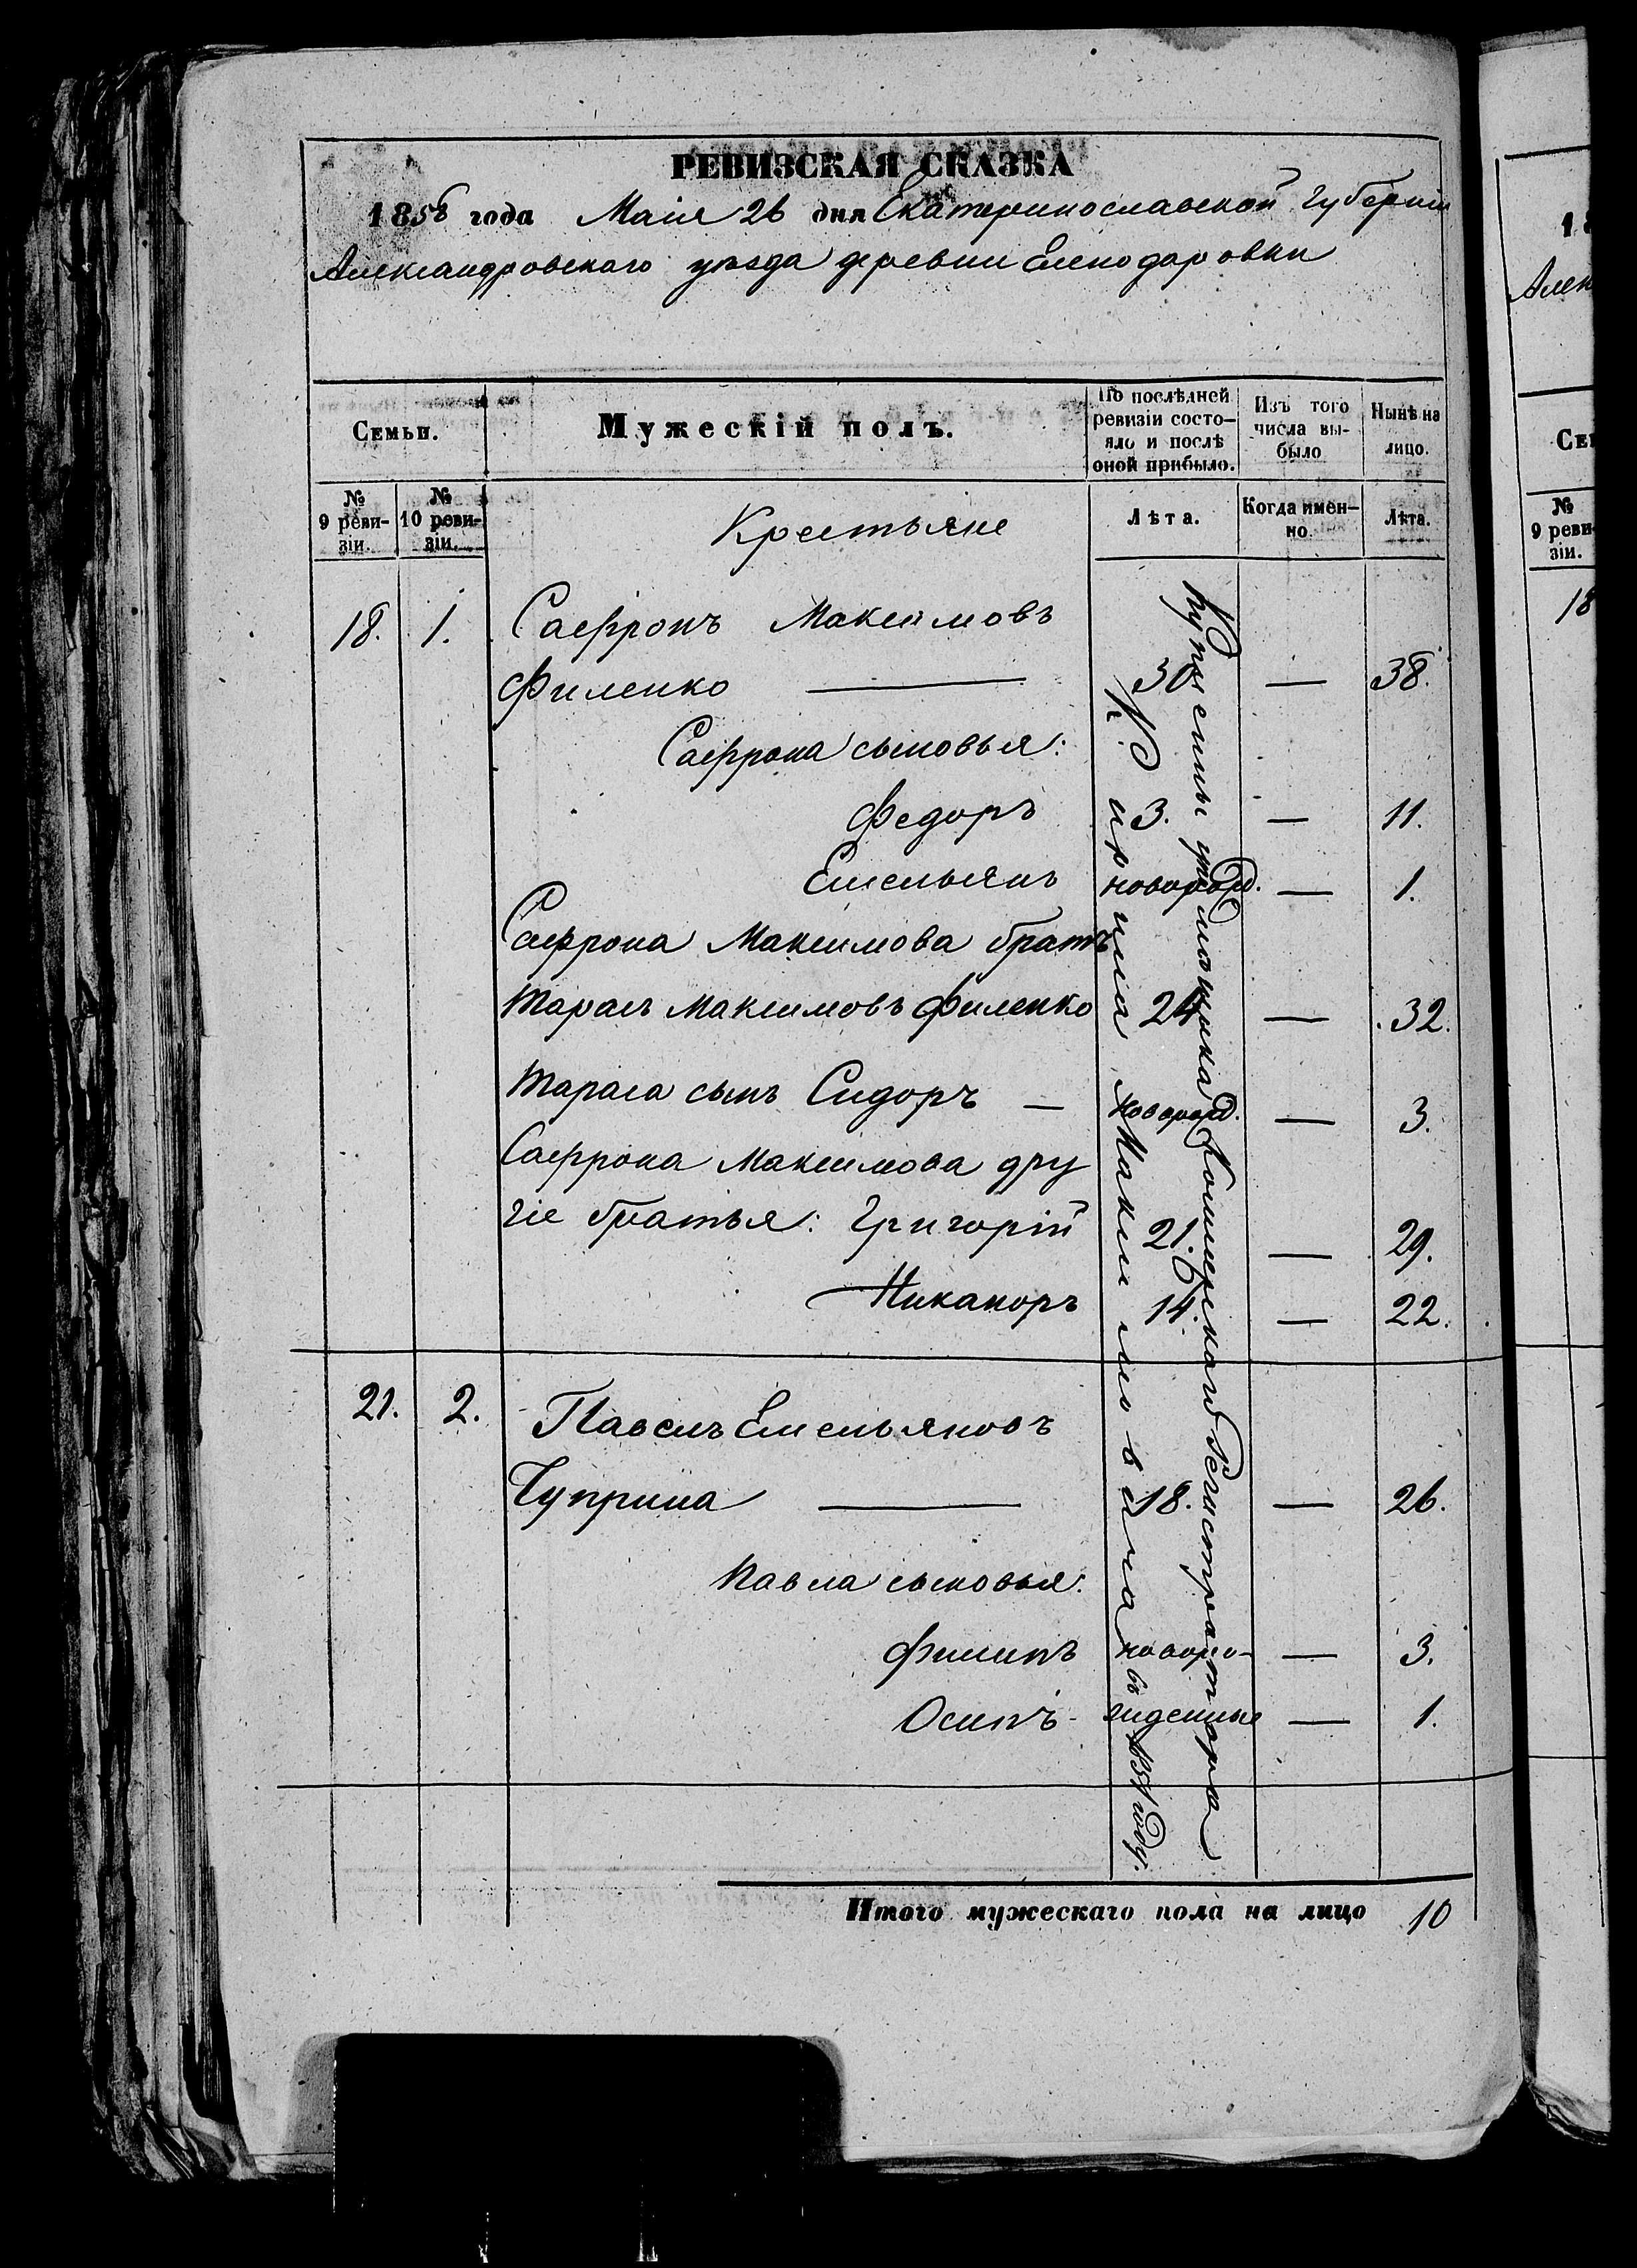 РЕВИЗСКАЯ СКАЗКА
1858 года Маія 26 дня Екатеринославской Губерніи
Александровскаго уѣзда деревни Еленодаровки
Семьи.
Мужескій полъ.
По послѣдней ревизіи состо-
яло и послѣ
оной прибыло.
Изъ того
числа вы-
было
Нынѣ на
лицо.
№
9 реви-
зіи.
№
10 реви-
зіи.
Крестьяне
Лѣта.
Когда имен-
но.
Лѣта.
18. 1. Сафронъ Максимовъ
Филенко — 30 — 38.
Сафрона сыновья:
Федоръ 3. — 11.
Емельянъ новорожд. — 1.
Сафрона Максимова братъ
Тарасъ Максимовъ Филенко 24 — 32.
Тараса сынъ Сидоръ — новорожд. — 3.
Сафрона Максимова дру
гіе братья: Григорій 21. — 29.
Никаноръ 14. — 22.
21. 2. Павелъ Емельяновъ
Чуприна — 18. — 26.
Павла сыновья:
Филипъ новоро- — 3.
Осипъ - жденные — 1.
Куплены у Коллежскаго Регистратора
Максимовича въ 1851 году.
Итого мужескаго пола на лицо 10
18
Алек
Се
№
9 реви
зіи.
18